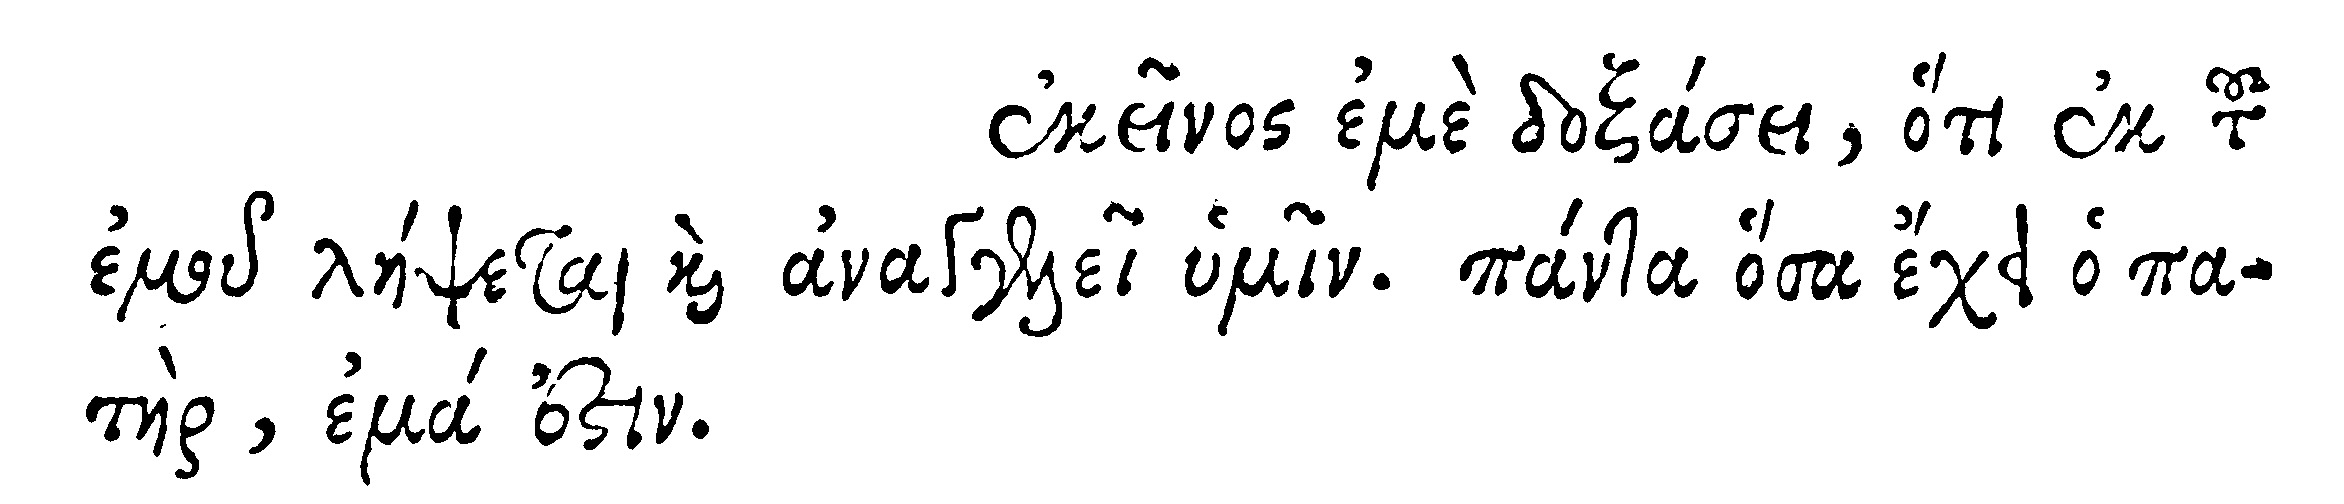 ἐκεῖνος ἐμὲ δοξάσει, ὅτι ἐκ τοῦ
ἐμοῦ λήψεται καὶ ἀναγγελεῖ ὑμῖν. πάντα ὅσα ἔχει ὁ πα-
τὴρ, ἐμά ἐστιν.